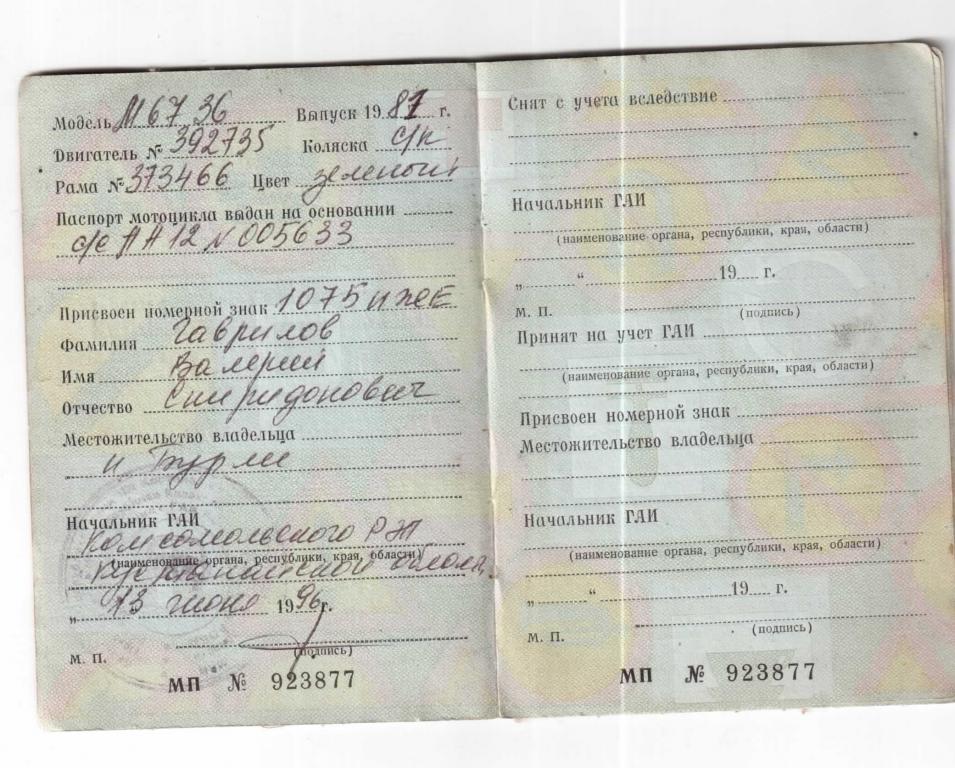 Модель М67 36 Выпуск 1981 г.
Двигатель № 392735 Коляска с/к
Рама № 373466 Цвет зеленый
Паспорт мотоцикла выдан на основании
с/с АА 12 N 005633
Присвоен номерной знак 1075
Фамилия Гаврилов
Имя Валерий
Отчество Спиридонович
Местожительство владельца
Начальник ГАИ
Комсомольского
(наименование органа, республики, края, области)
Кустанайской
„13 июня 1996г.
(подпись)
М. П.
МП № 923877
Снят с учета вследствие
Начальник ГАИ
(наименование органа, республики, края, области)
„ “ 19 г.
М. П. (подпись)
Принят на учет ГАИ
(наименование органа, республики, края, области)
Присвоен номерной знак
Местожительство владельца
Начальник ГАИ
(наименование органа, республики, края, области)
„ “ 19 г.
М. П. (подпись)
МП № 923877